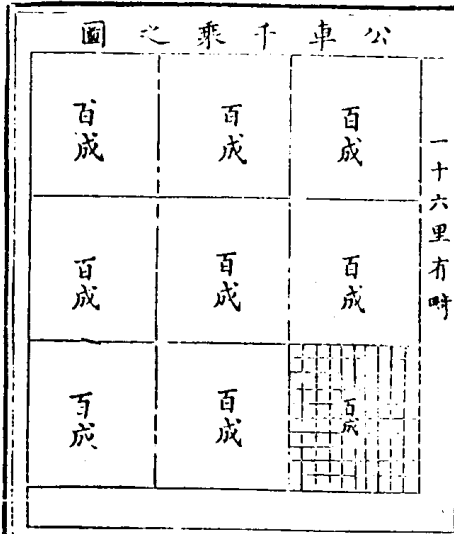 公車千乘之圖
一十六里有畸
百成
百成
百成
百成
百成
百成
百成
百成
百成